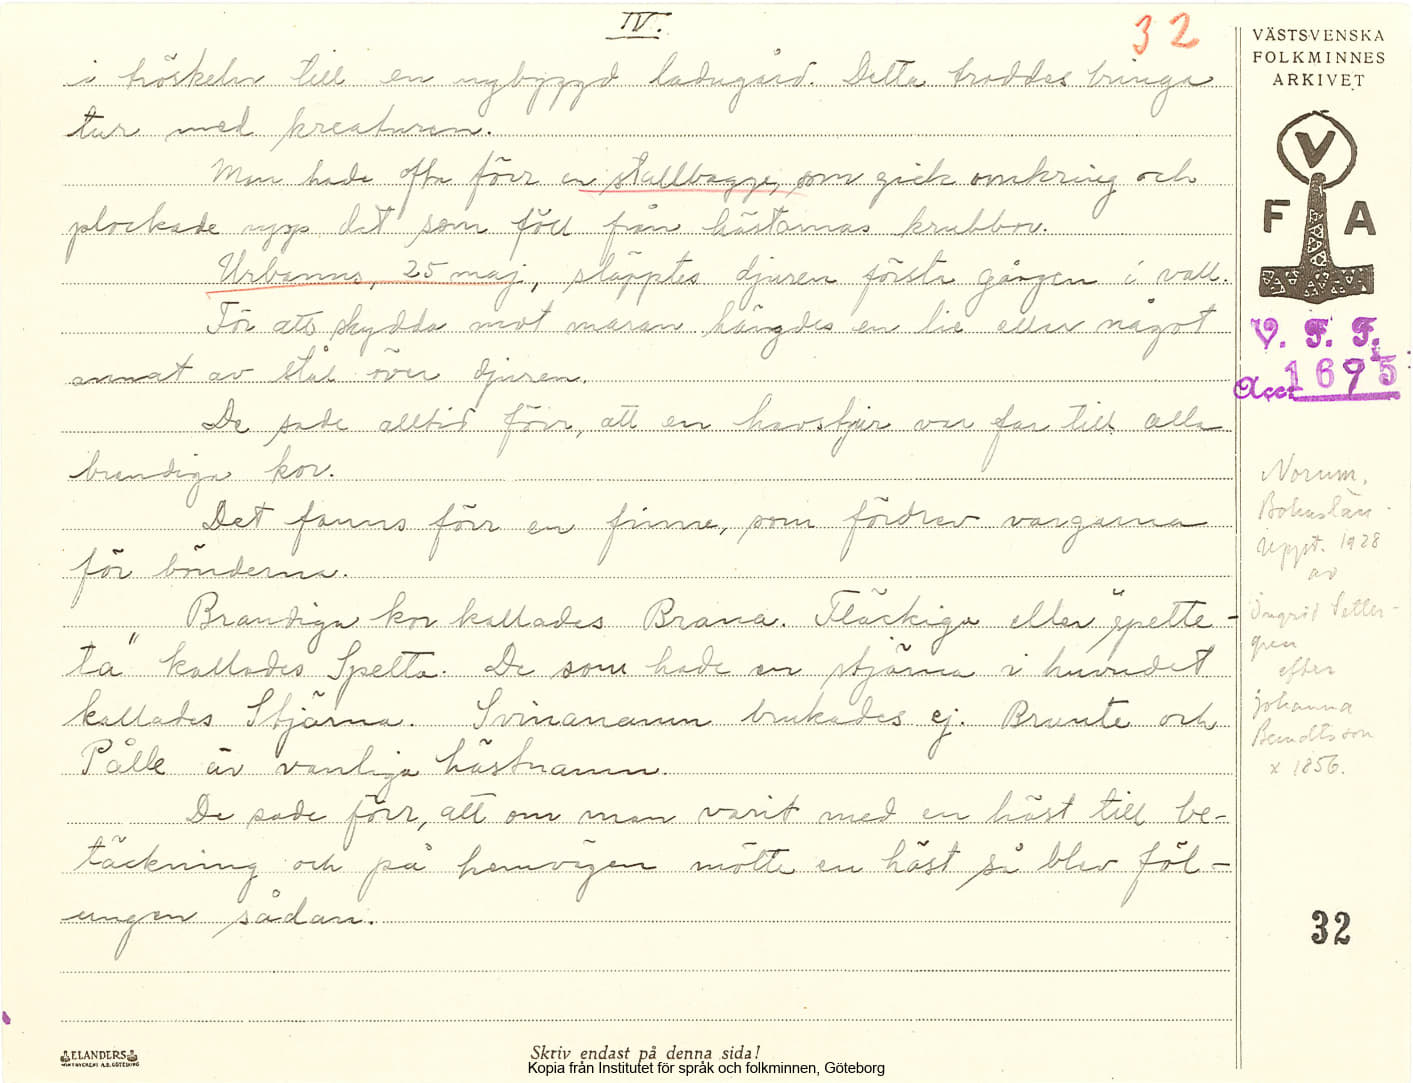 IV.
32
i tröskeln till en nybyggd ladugård. Detta troddes bringa
tur med kreaturen.
Man hade ofta förr en stallbagge, som gick omkring och
plockade upp det som föll från hästarnas krubbor.
Urbanus, 25 maj, släpptes djuren första gången i vall.
För att skydda mot maran hängdes en lie eller något
annat av stål över djuren.
De sade alltid förr, att en havstjur var far till alla
brandiga kor.
Det fanns förr en finne, som fördrev vargarna
för bönderna.
Brandiga kor kallades Brana. Fläckiga eller "spette-
ta" kallades Spetta. De som hade en stjärna i huvudet
kallades Stjärna. Svinanamn brukades ej. Brunte och
Pålle är vanliga hästnamn.
De sade förr, att om man varit med en häst till be-
täckning och på hemvägen mötte en häst så blev föl-
ungen sådan.
VÄSTSVENSKA
FOLKMINNES
ARKIVET
V
F A
V. F. F.
Acc. 1695
Norum,
Bohuslän.
Uppt. 1928
av
Ingrid Setter-
gren
efter
Johanna
Berndtsson
x 1856.
32
ELANDERS
Skriv endast på denna sida!
Kopia från Institutet för språk och folkminnen, Göteborg